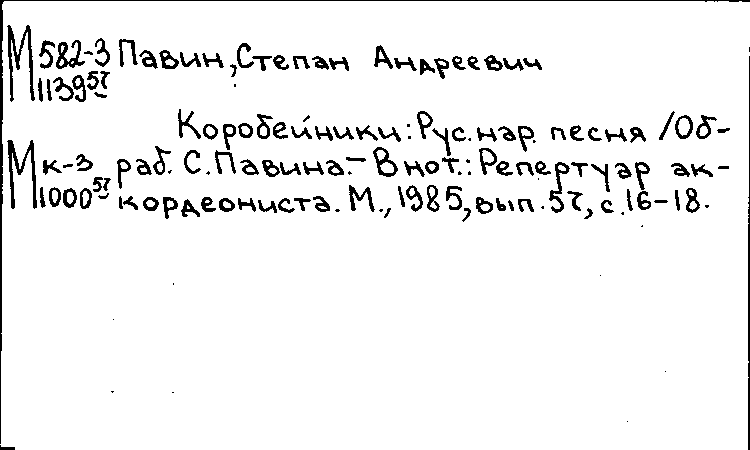 М 582-3 Павин, Степан Андреевич
1139 57
Коробейники: Рус. нар. песня /Об-
М к-3 раб. С. Павина. – В нот.: Репертуар ак-
1000 57 кордеониста. М., 1985, вып. 57, с. 16-18.